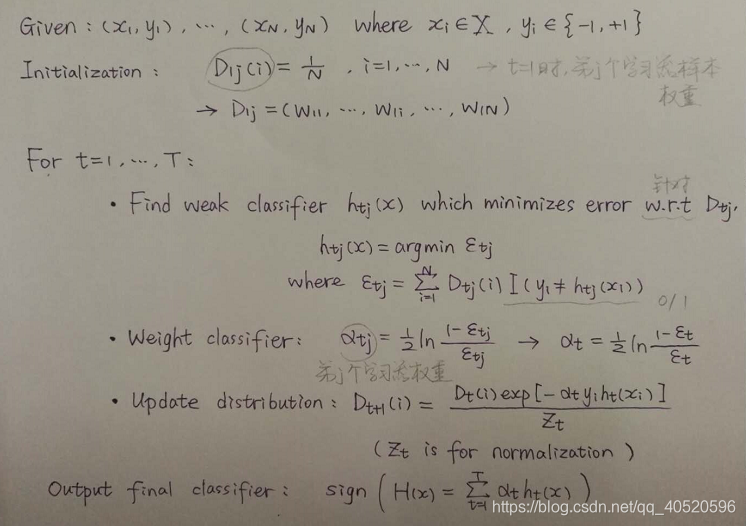 Given : (x₁, y₁), ⋯, (xN, yN) where xi ∈ X, yi ∈ {-1, +1}
Initialization : D1j(i) = 1/N , i=1, ⋯, N → t=1时,第j个学习法样本
权重
→ D1j = (W11, ⋯, W1i, ⋯, W1N)
For t=1, ⋯, T :
针对
• Find weak classifier htj(x) which minimizes error w.r.t Dtj,
htj(x) = argmin εtj
where εtj = Σ_{i=1}^{N} Dtj(i) I(yi ≠ htj(xi))
0/1
• Weight classifier: αtj = ½ ln (1-εtj)/εtj → αt = ½ ln (1-εt)/εt
第j个学习法权重
• Update distribution : Dt+1(i) = Dt(i) exp[-αt yi ht(xi)] / Zt
(Zt is for normalization)
Output final classifier : sign ( H(x) = Σ_{t=1}^{T} αt ht(x) )
https://blog.csdn.net/qq_40520596